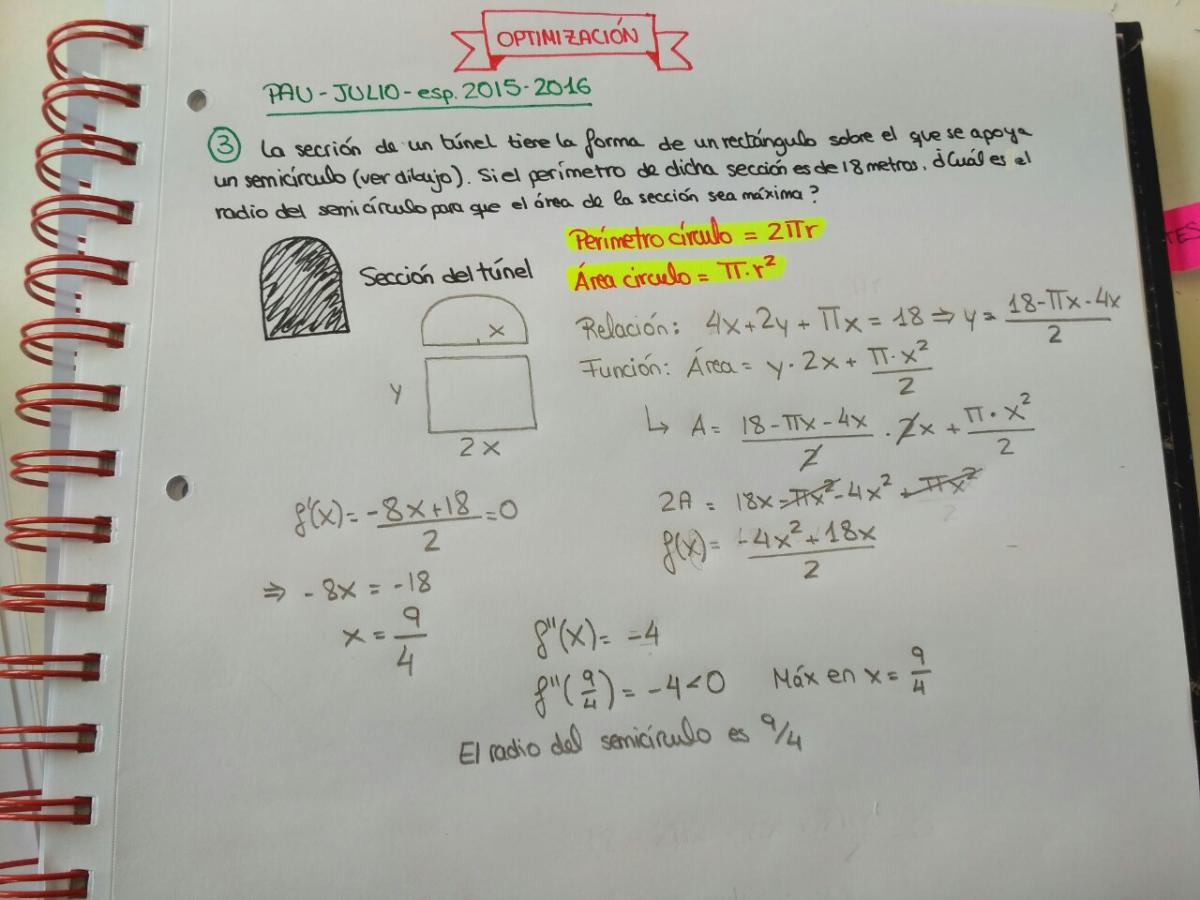 OPTIMIZACIÓN
PAU - JULIO - esp. 2015 - 2016
③ La sección de un túnel tiene la forma de un rectángulo sobre el que se apoya
un semicírculo (ver dibujo). Si el perímetro de dicha sección es de 18 metros. ¿Cuál es el
radio del semicírculo para que el área de la sección sea máxima?
Perímetro círculo = 2πr
Sección del túnel
Área circulo = π·r²
x
Relación: 4x+2y+πx = 18 ⇒ y = (18-πx-4x)/2
y
Función: Área = y·2x + (π·x²)/2
2x
↳ A = (18-πx-4x)/2 · 2x + (π·x²)/2
2A = 18x - πx² - 4x² + πx²
2
f(x) = (-4x²+18x)/2
f'(x) = (-8x+18)/2 = 0
⇒ -8x = -18
x = 9/4
f''(x) = -4
f''(9/4) = -4 < 0 Máx en x = 9/4
El radio del semicírculo es 9/4
TES